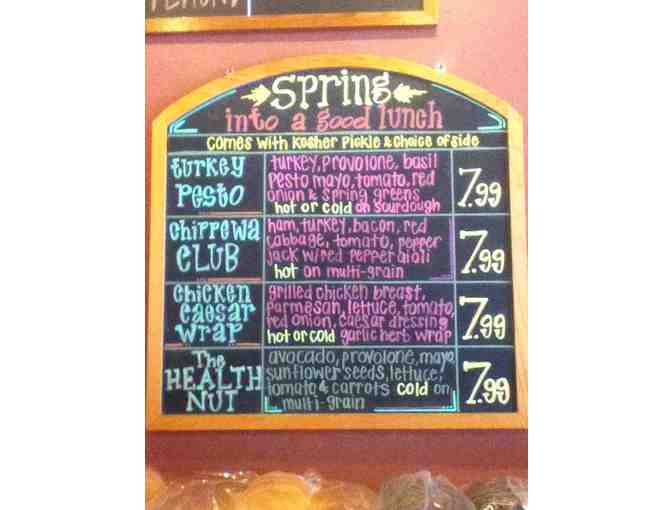 Spring
into a good lunch
Comes with Kosher Pickle & Choice of side
turkey
Pesto
turkey, provolone, basil
Pesto mayo, tomato, red
onion & spring greens
hot or cold on sourdough
7.99
Chippewa
CLUB
ham, turkey, bacon, red
cabbage, tomato, pepper
jack w/red pepper aioli
hot on multi-grain
7.99
Chicken
Caesar
Wrap
grilled chicken breast,
parmesan, lettuce, tomato,
red onion, caesar dressing
hot or cold garlic herb wrap
7.99
The
HEALTH
NUT
avocado, provolone, mayo,
sunflower seeds, lettuce,
tomato & carrots cold on
multi-grain
7.99